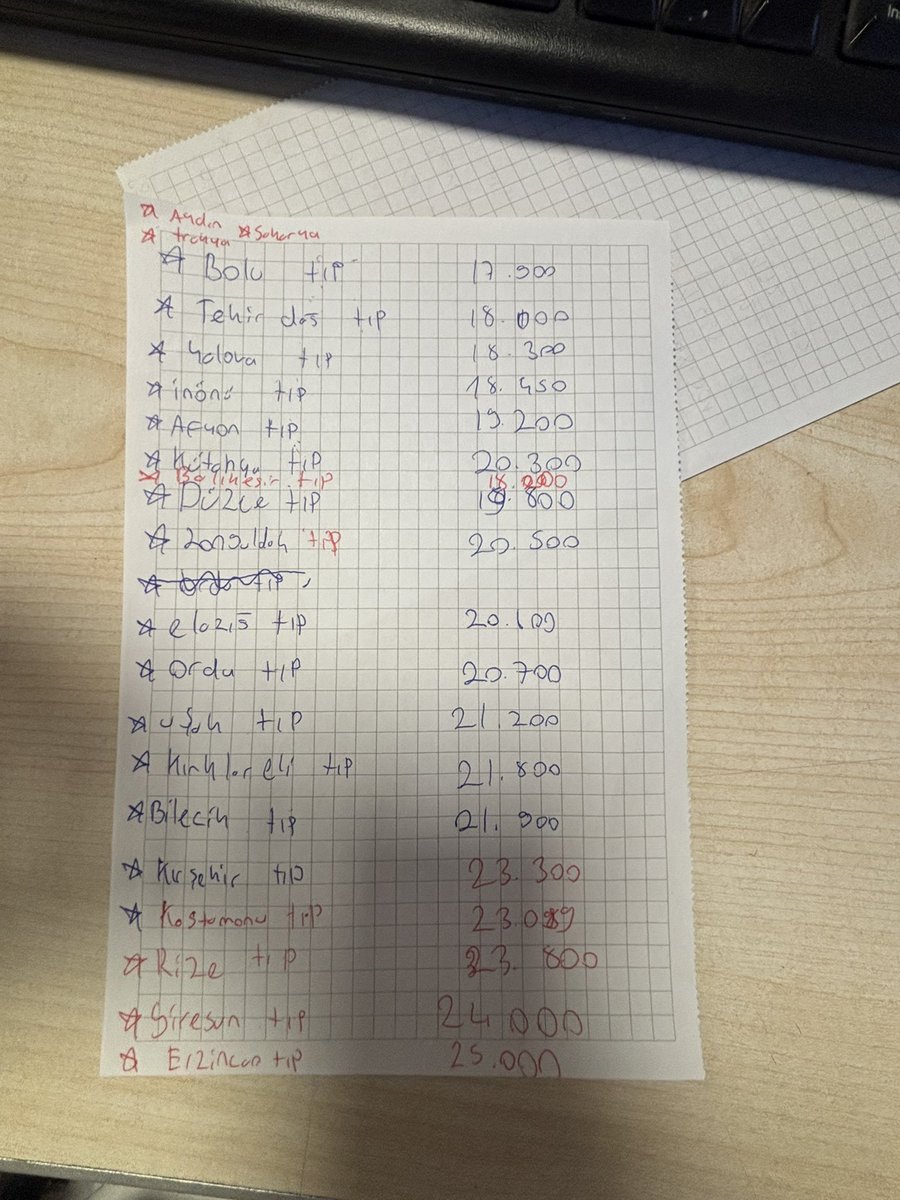 ☆ Aydın
☆ trakya ☆ Sakarya
☆ Bolu tıp 17.900
☆ Tekirdağ tıp 18.000
☆ Yalova tıp 18.300
☆ inönü tıp 18.450
☆ Afyon tıp 19.200
☆ Kütahya tıp 20.300
☆ Balıkesir tıp 18.200
☆ Düzce tıp 19.800
☆ Zonguldak tıp 20.500
☆ elazığ tıp 20.100
☆ Ordu tıp 20.700
☆ uşak tıp 21.200
☆ Kırklareli tıp 21.800
☆ Bilecik tıp 21.900
☆ Kırşehir tıp 23.300
☆ Kastamonu tıp
☆ Rize tıp 23.800
☆ Giresun tıp 24.000
☆ Erzincan tıp 25.000